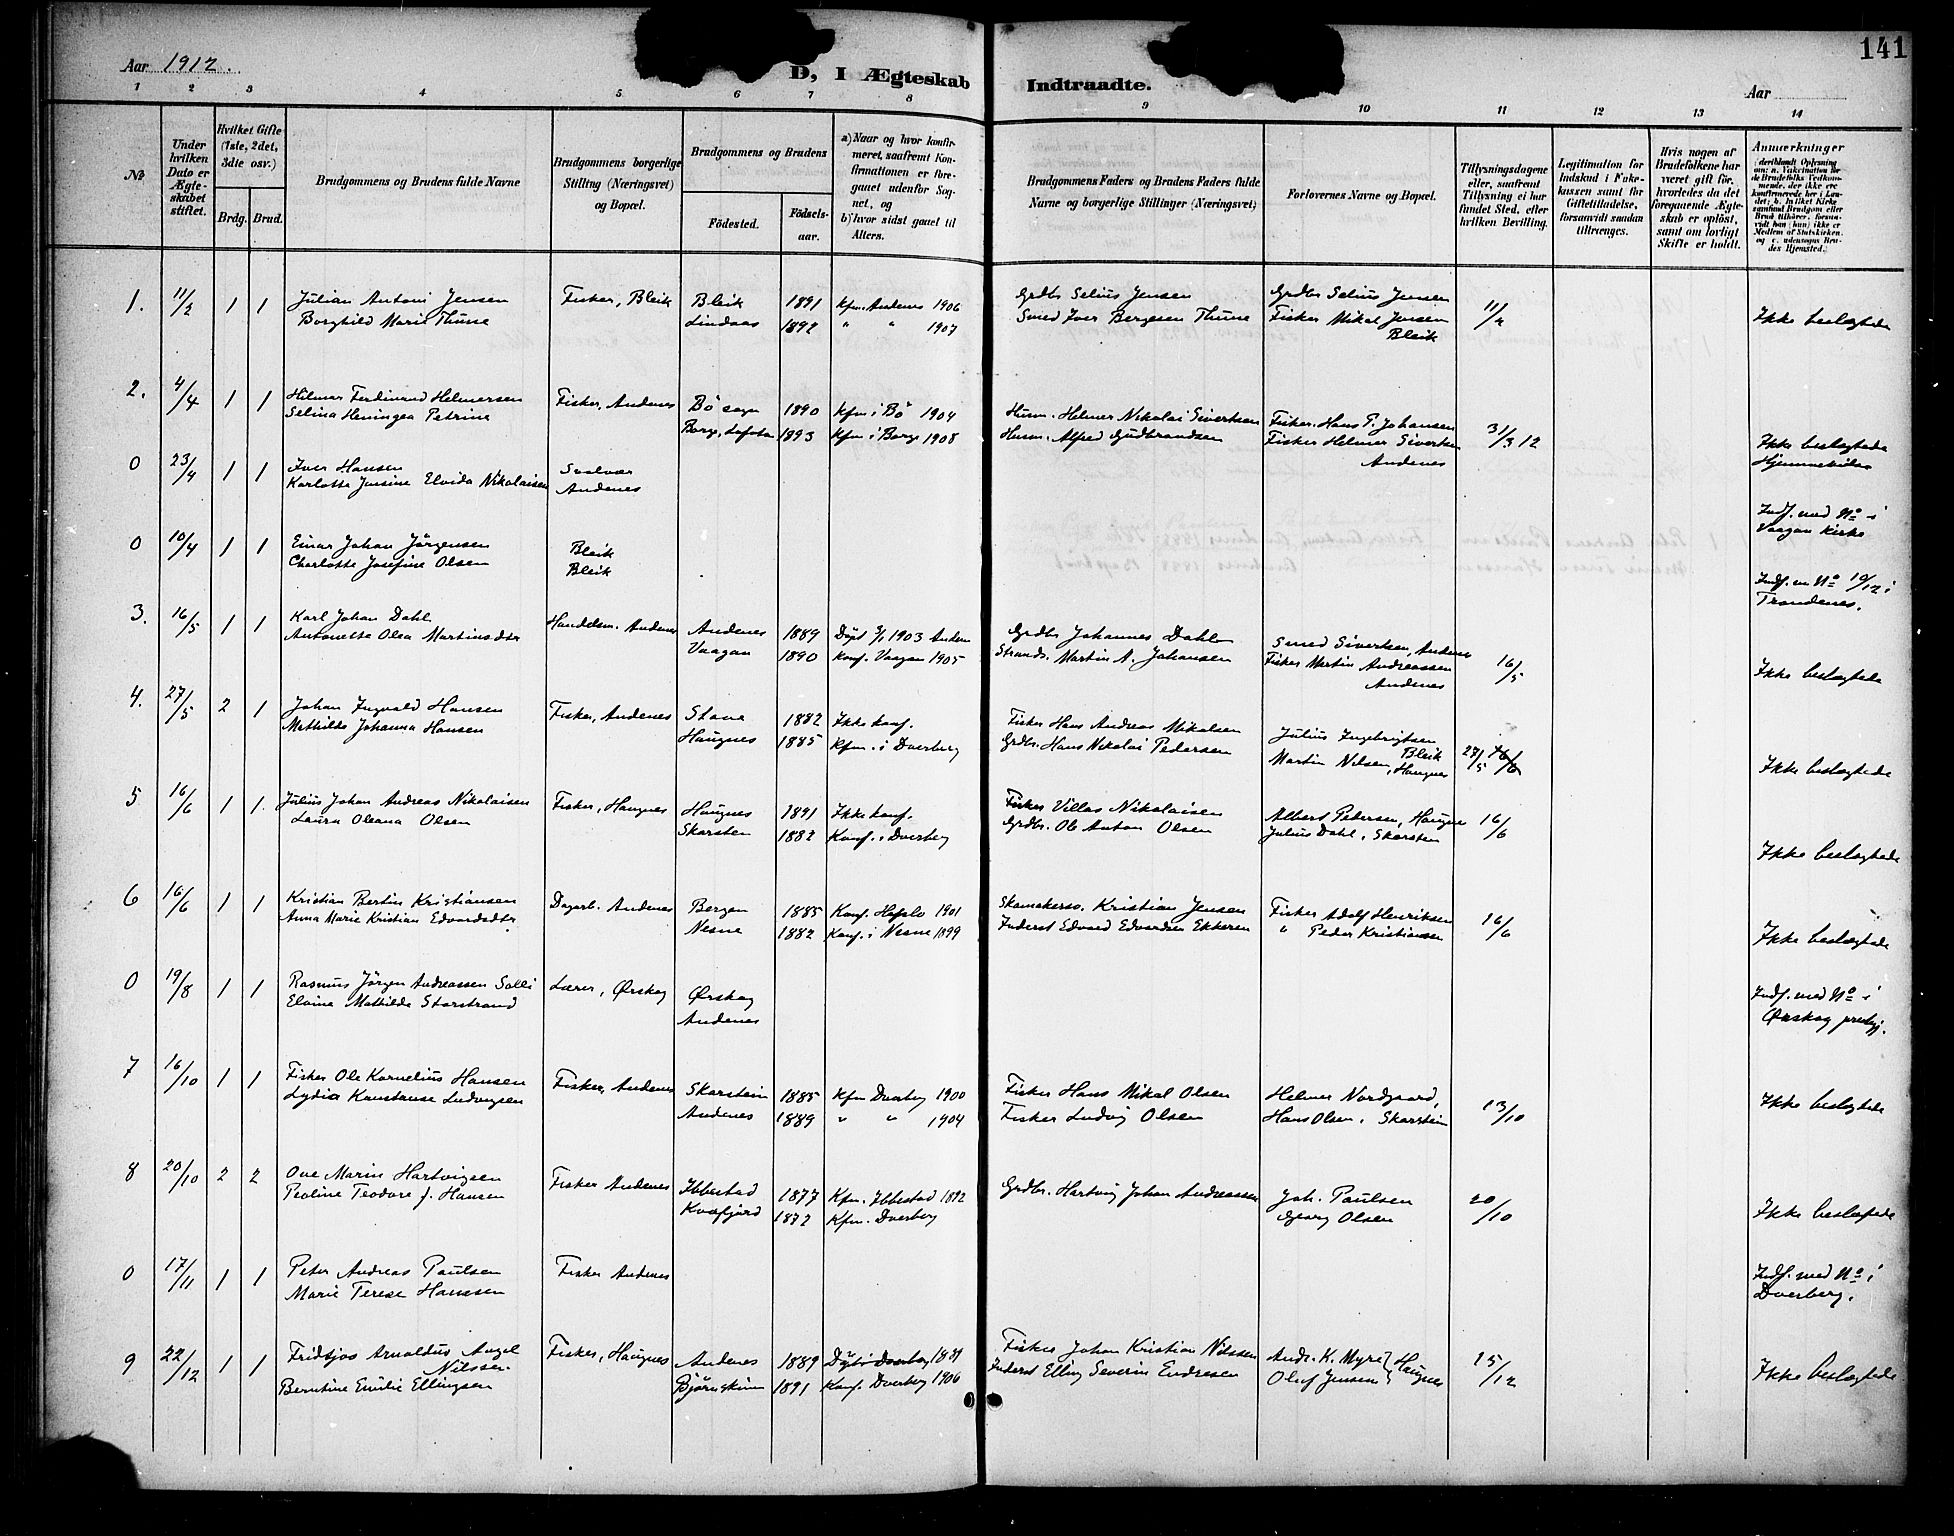 141
Aar 1912.
D, I Ægteskab Indtraadte.
Aar
1 2 3 4 5 6 7 8 9 10 11 12 13 14
№
Under hvilken Dato er Ægteskabet stiftet.
Hvilket Gifte (1ste, 2det, 3die osv.)
Brdg. Brud.
Brudgommens og Brudens fulde Navne
Brudgommens borgerlige Stilling (Næringsvei) og Bopæl.
Brudgommens og Brudens
Fødested. Fødselsaar.
a) Naar og hvor konfirmeret, saafremt Konfirmationen er foregaaet udenfor Sognet, og
b) hvor sidst gaaet til Alters.
Brudgommens Faders og Brudens Faders fulde Navne og borgerlige Stillinger (Næringsvei)
Forlovernes Navne og Bopæl.
Tillysningsdagene eller, saafremt Tillysning ei har fundet Sted, efter hvilken Bevilling.
Legitimation for Indskud i Enkekassen samt for Giftetilladelse, forsaavidt saadan tiltrænges.
Hvis nogen af Brudefolkene har været gift før, hvorledes da det foregaaende Ægteskab er opløst, samt om lovligt Skifte er holdt.
Anmærkninger
1. 11/2 1 1 Julian Antoni Jensen Fisker, Bleik Bleik 1891 Kfm. Andenes 1906 Grdbr. Selius Jensen Grdbr Selius Jensen 11/2 Ikke beslægtede
Borghild Marie Thune Lindaas 1892 " " 1907 Smed Iver Bergesen Thune Fisker Mikal Jensen
Bleik
2. 4/4 1 1 Hilmar Ferdinand Helmersen Fisker, Andenes Bø sogn 1890 Kfm i Bø 1904 Husm. Helmer Nikolai Sivertsen Fisker Hans P. Johansen 31/3 12 Ikke beslægtede
Selina Heningea Petrine Borge, Lofoten 1893 Kfm. i Borge 1908 Husm. Alfred Gudbrandsen Fisker Helmer Sivertsen
Andenes
0 23/4 1 1 Iver Hansen Svolvær
Karlotte Jensine Elvida Nikolaisen Andenes
Indf. med No i
Vaagan Kirke
0 10/4 1 1 Einar Johan Jørgensen Bleik
Charlotte Josefine Olsen Bleik
Indf. m No 10/12 i
Trondenes.
3. 16/5 1 1 Karl Johan Dahl Handelsm. Andenes Andenes 1889 Døpt 1903 Andenes Grdbr Johannes Dahl Smed Sivertsen, Andenes 16/5 Ikke beslægtede
Antonette Olea Martinsdtr Vaagan 1890 Konf. Vaagan 1905 Strands. Martin A. Johansen Fisker Martin Andreassen
Andenes
4. 27/5 2 1 Johan Ingvald Hansen Fisker, Andenes Stave 1882 Ikke konf. Fisker Hans Andreas Mikalsen Julius Ingebrigtsen 27/5 16/6 Ikke beslægtede
Mathilde Johanna Hansen Haugnes 1885 Kfm. i Dverberg Grdbr. Hans Nikolai Pedersen Bleik
Martin Nilsen, Haugnes
5 16/6 1 1. Julius Johan Andreas Nikolaisen Fisker, Haugnes Haugnes 1891 Ikke konf. Fisker Villas Nikolaisen Albert Pedersen, Haugnes 16/6 Ikke beslægtede
Laura Oleana Olsen Skarsten 1882 Konf. i Dverberg Grdbr. Ole Anton Olsen Julius Dahl, Skarsten
6 16/6 1 1 Kristian Bertin Kristiansen Dagarb. Andenes Bergen 1885 Konf. Hafslo 1901 Skomakersv. Kristian Jensen Fisker Adolf Henriksen 16/6 Ikke beslægtede
Anna Marie Kristian Edvardsdtr Nesne 1882 Konf. i Nesne 1899 Inderst Edvard Edvardsen Ekkeren " Peder Kristiansen
0 19/8 1 1 Rasmus Jørgen Andreassen Solli Lærer, Ørskog Ørskog
Elvine Mathilde Storstrand Andenes
Indf. med No i
Ørskog prestgj.
7 16/10 1 1 Fisker Ole Kornelius Hansen Fisker, Andenes Skarstein 1885 Kfm Dverberg 1900 Fisker Hans Mikal Olsen Helmer Nordgaard, 13/10 Ikke beslægtede
Lydia Konstanse Ludvigsen Andenes 1889 " " 1904 Fisker Ludvig Olsen Hans Olsen, Skarstein
8 20/10 2 2 Ove Marin Hartvigsen Fisker Andenes Ibbestad 1877 Kfm. Ibbestad 1892 Grdbr. Hartvig Johan Andreassen Joh. Paulsen 20/10 Ikke beslægtede
Peoline Teodore f. Hansen Kvæfjord 1872 Kfm. Dverberg Georg Olsen
0 17/11 1 1 Peter Andreas Paulsen Fisker Andenes
Marie Terese Hansen
Indf. med No i
Dverberg.
9 22/12 1 1 Fridtjof Arnoldus Angel Fisker, Haugnes Andenes 1889 Døbt i Dverberg 1889 Fisker Johan Kristian Nilssen Andr. K. Myre } Haugnes 15/12 Ikke beslægtede
Nilssen
Berntine Emilie Ellingsen Bjørnskinn 1891 Konf. Dverberg 1906 Inderst Elling Severin Endresen Oluf Jensen